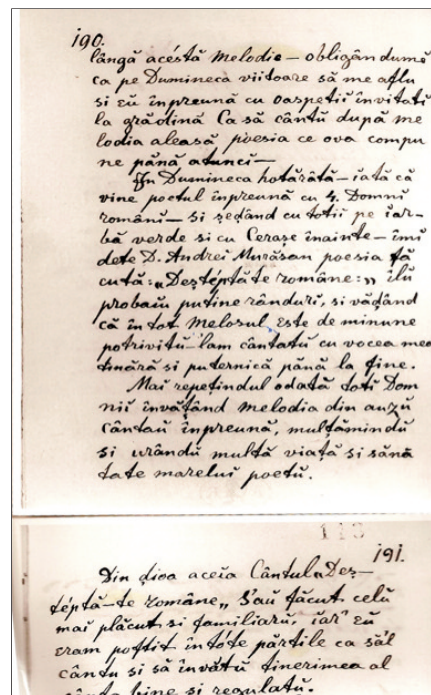 190.
lângă acéstă melodie — obligându mĕ
ca pe Dumineca viitoare să me aflu
si eŭ înpreună cu oaspetiĭ învitatĭ
la grădină Ca să cântŭ după me
lodia aleasă poesia ce ova compu
ne până atunci —
În Dumineca hotărâtă — iată că
vine poetul înpreună cu 4. Domnĭ
românĭ — Si șezând cu totiĭ pe iar-
bă verde si cu Cerase înainte — îmĭ
dete D. Andreĭ Murăsan poesia fă
cută: „Deștéptăte române:„ îlŭ
probaiŭ putine rândurĭ, si văḑând
că în tot Melosul Este de minune
potrivitŭ — lam cântatŭ cu vocea mea
tinără si puternică până la fine.
Maĭ repețindul odată totĭ Dom
niĭ învățând melodia din auzŭ
cântaŭ înpreună, mulțămindŭ
si urândŭ multă viață si sănă
tate mareluĭ poetŭ.
113
191.
Din ḑioa aceia Cântul „Deș—
téptă-te române„ S'aŭ făcut celŭ
maĭ plăcut si familiarŭ, iar' eŭ
eram poftit întóte părțile ca săl
cântu si să învătŭ tinerimea al
cânta bine si regulatŭ.